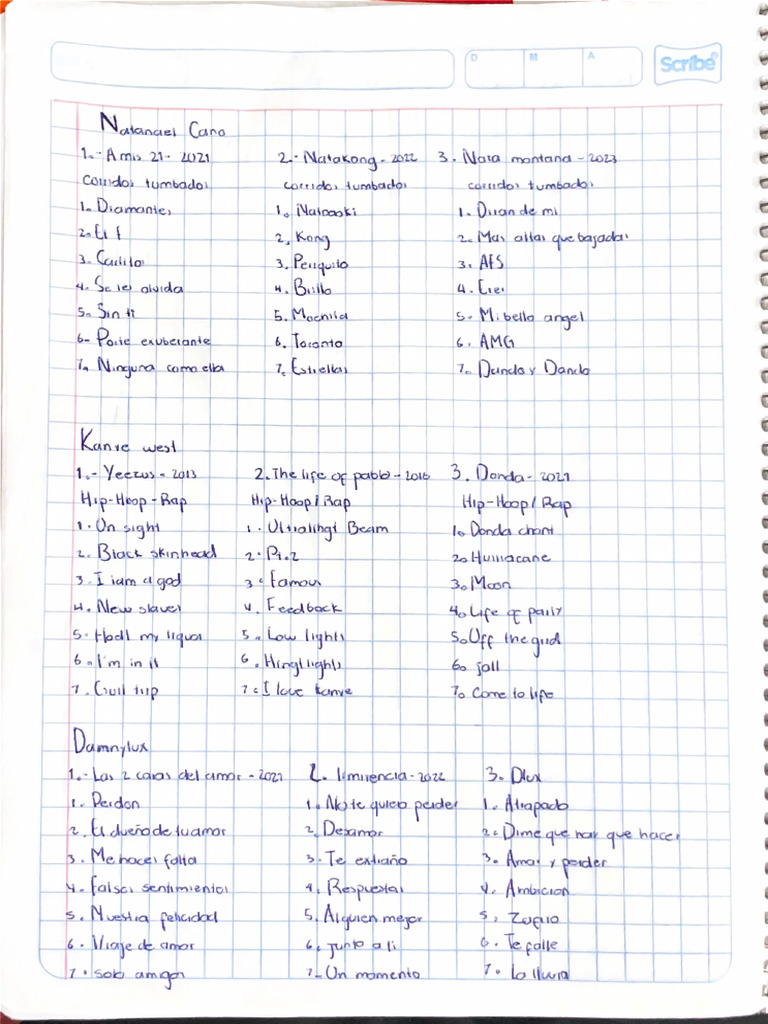 D M A Scribe
Natanael Cano
1.- Amis 21 - 2021
corridos tumbados
1. Diamantes
2. El F
3. Carlitos
4. Se les olvida
5. Sin ti
6- Porte exuberante
7. Ninguna como ella
2.- Natakong - 2022
corridos tumbados
1. Nataoki
2. Kong
3. Periquito
4. Brillo
5. Mochila
6. Toronto
7. Estrellas
3. Nata montana - 2023
corridos tumbados
1. Duran de mi
2. Mas altas que bajadas
3. AFS
4.
5. Mi bello angel
6. AMG
7. Dando y Dando
Kanye west
1.- Yeezus - 2013
Hip-Hoop-Rap
1. On sight
2. Black skinhead
3. I iam a god
4. New slaves
5. Hodl my liquor
6. I'm in it
7. Guilt trip
2. The life of pablo - 2016
Hip-Hoop/Rap
1. Ultralihgt Beam
2. Pt.2
3. Famous
4. Feedback
5. Low lights
6. Hinghlights
7. I love kanye
3. Donda - 2021
Hip-Hoop/Rap
1. Donda chant
2. Hurracane
3. Moon
4. Life of party
5. Off the grid
6. jail
7. Come to life
Damnylux
1.- Las 2 caras del amor - 2021
1. Perdon
2. El dueño de tu amor
3. Me haces falta
4. Falsos sentimientos
5. Nuestra felicidad
6. Viaje de amor
7. solo amigos
2. limirencia - 2022
1. No te quiero perder
2. Desamor
3. Te extraño
4. Respuestas
5. Alguien mejor
6. junto a ti
7- Un momento
3. Dlux
1. Atrapado
2. Dime que hay que hacer
3. Amar y perder
4. Ambicion
5. Zafiro
6. Te falle
7. La lluvia